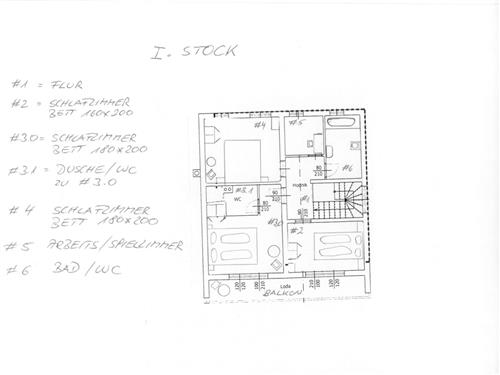 I. STOCK
#1 = FLUR
#2 = SCHLAFZIMMER
BETT 160x200
#3.0= SCHLAFZIMMER
BETT 180x200
#3.1 = DUSCHE/WC
ZU #3.0
#4 SCHLAFZIMMER
BETT 180x200
#5 ARBEITS/SPIELZIMMER
#6 BAD/WC
#4
#5
#6
80
210
Hodnik
#3.1
WC
90
210
80
210
#1
#3.0
#2
120
120
100
120
210
Loda
210
120
100
120
120
BALKON